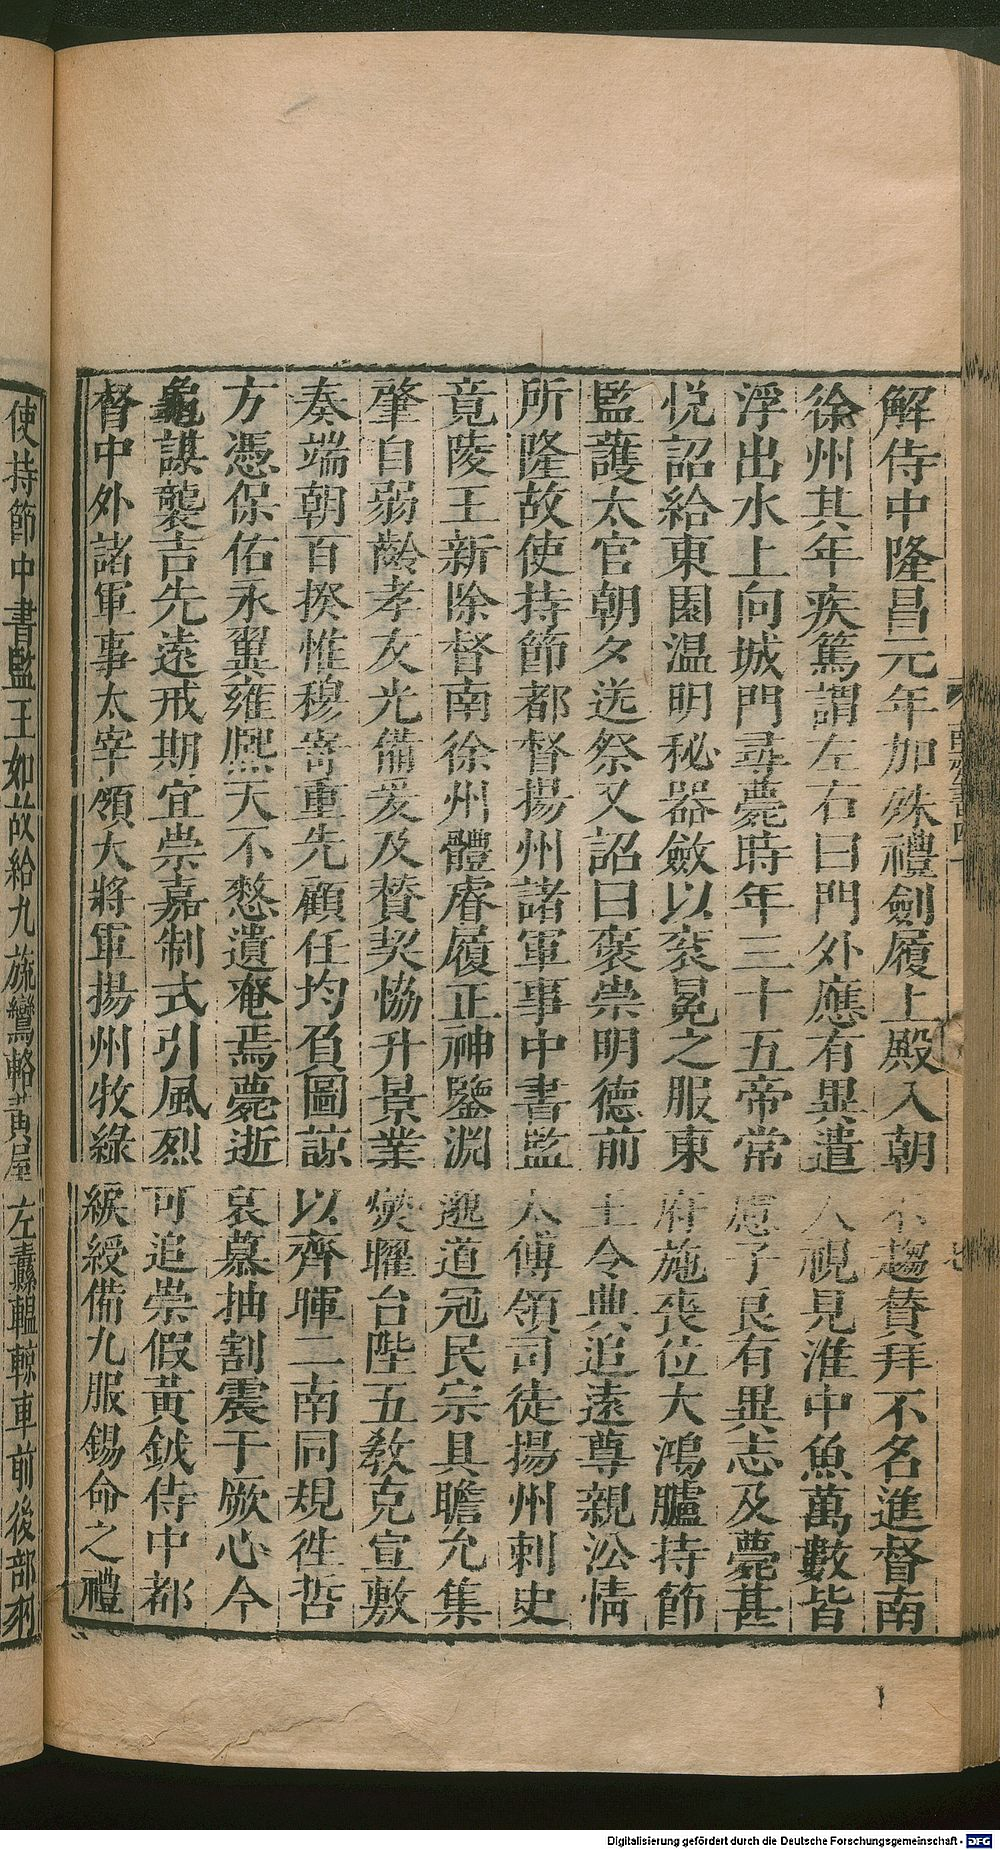 解侍中隆昌元年加殊禮劍履上殿入朝不趨賛拜不名進督南
徐州其年疾篤謂左右曰門外應有異遣人視見淮中魚萬數皆
浮出水上向城門尋薨時年三十五帝常慮子良有異志及薨甚
悦詔給東園温明秘器斂以衮冕之服東府施喪位大鴻臚持節
監護太官朝夕送祭又詔曰褒崇明德前王令典追遠尊親沿情
所隆故使持節都督揚州諸軍事中書監太傅領司徒揚州刺史
竟陵王新除督南徐州體睿履正神鑒淵邈道冠民宗具瞻允集
肇自弱齡孝友光備爰及賛契恊升景業燮曜台陛五教克宣敷
奏端朝百揆惟穆寄重先顧任均負圖諒以齊暉二南同規往哲
方憑保佑永翼雍熙天不憗遺奄焉薨逝哀慕抽割震于厥心今
龜謀襲吉先遠戒期宜崇嘉制式引風烈可追崇假黃鉞侍中都
督中外諸軍事太宰領大將軍揚州牧綠綟綬備九服錫命之禮
使持節中書監王如故給九旒鸞輅黃屋左纛轀輬車前後部羽
Digitalisierung gefördert durch die Deutsche Forschungsgemeinschaft - DFG